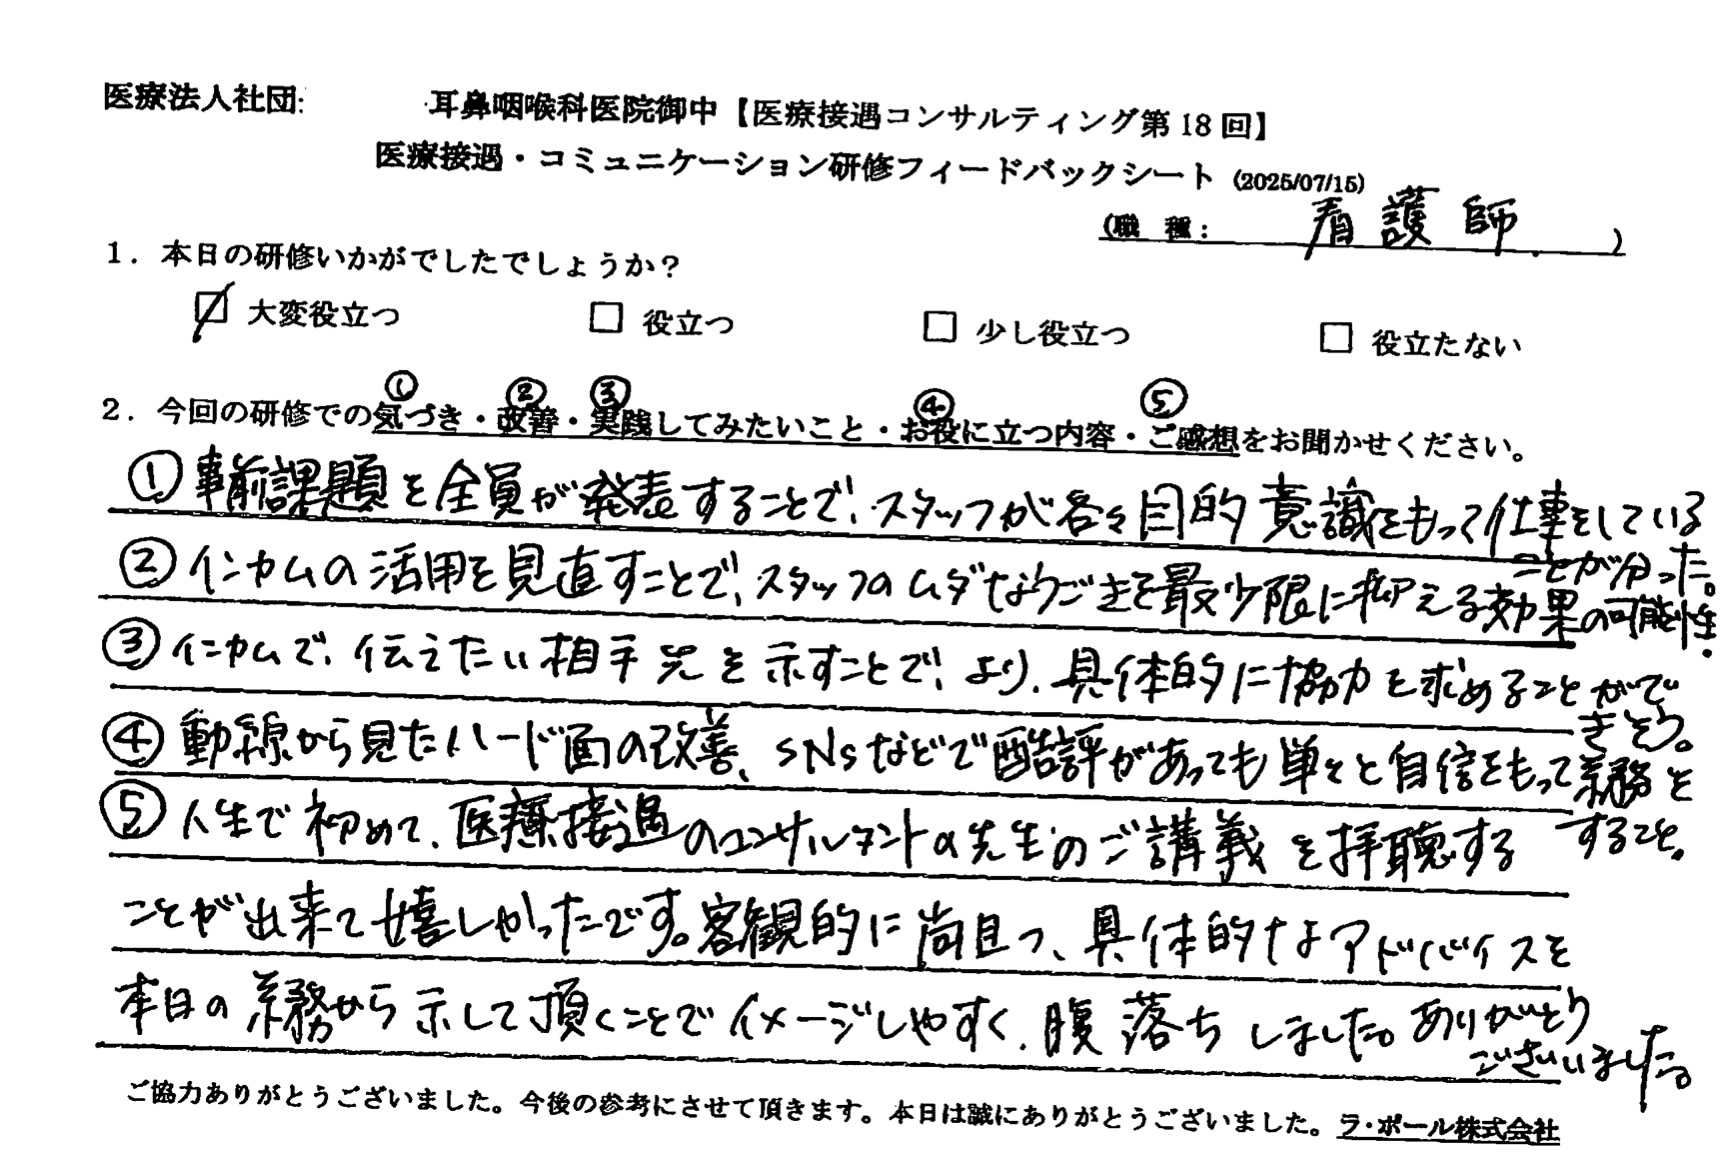 医療法人社団: 耳鼻咽喉科医院御中【医療接遇コンサルティング第18回】
医療接遇・コミュニケーション研修フィードバックシート (2025/07/15)
(職 種: 看護師. )
1. 本日の研修いかがでしたでしょうか?
☑ 大変役立つ □ 役立つ □ 少し役立つ □ 役立たない
① ② ③ ④ ⑤
2. 今回の研修での気づき・改善・実践してみたいこと・お役に立つ内容・ご感想をお聞かせください。
① 事前課題を全員が発表することで、スタッフが各々目的意識をもって仕事をしている
ことが分った。
② インカムの活用を見直すことで、スタッフのムダなうごきを最少限に抑える効果の可能性.
③ インカムで、伝えたい相手先を示すことで、より、具体的に協力を求めることがで
きそう。
④ 動線から見たハード面の改善、SNSなどで酷評があっても単々と自信をもって業務を
すること。
⑤ 人生で初めて、医療接遇のコンサルタントの先生のご講義を拝聴する
ことが出来て嬉しかったです。客観的に尚且つ、具体的なアドバイスを
本日の業務から示して頂くことでイメージしやすく、腹落ちしました。ありがとう
ございました。
ご協力ありがとうございました。今後の参考にさせて頂きます。本日は誠にありがとうございました。ラ・ポール株式会社